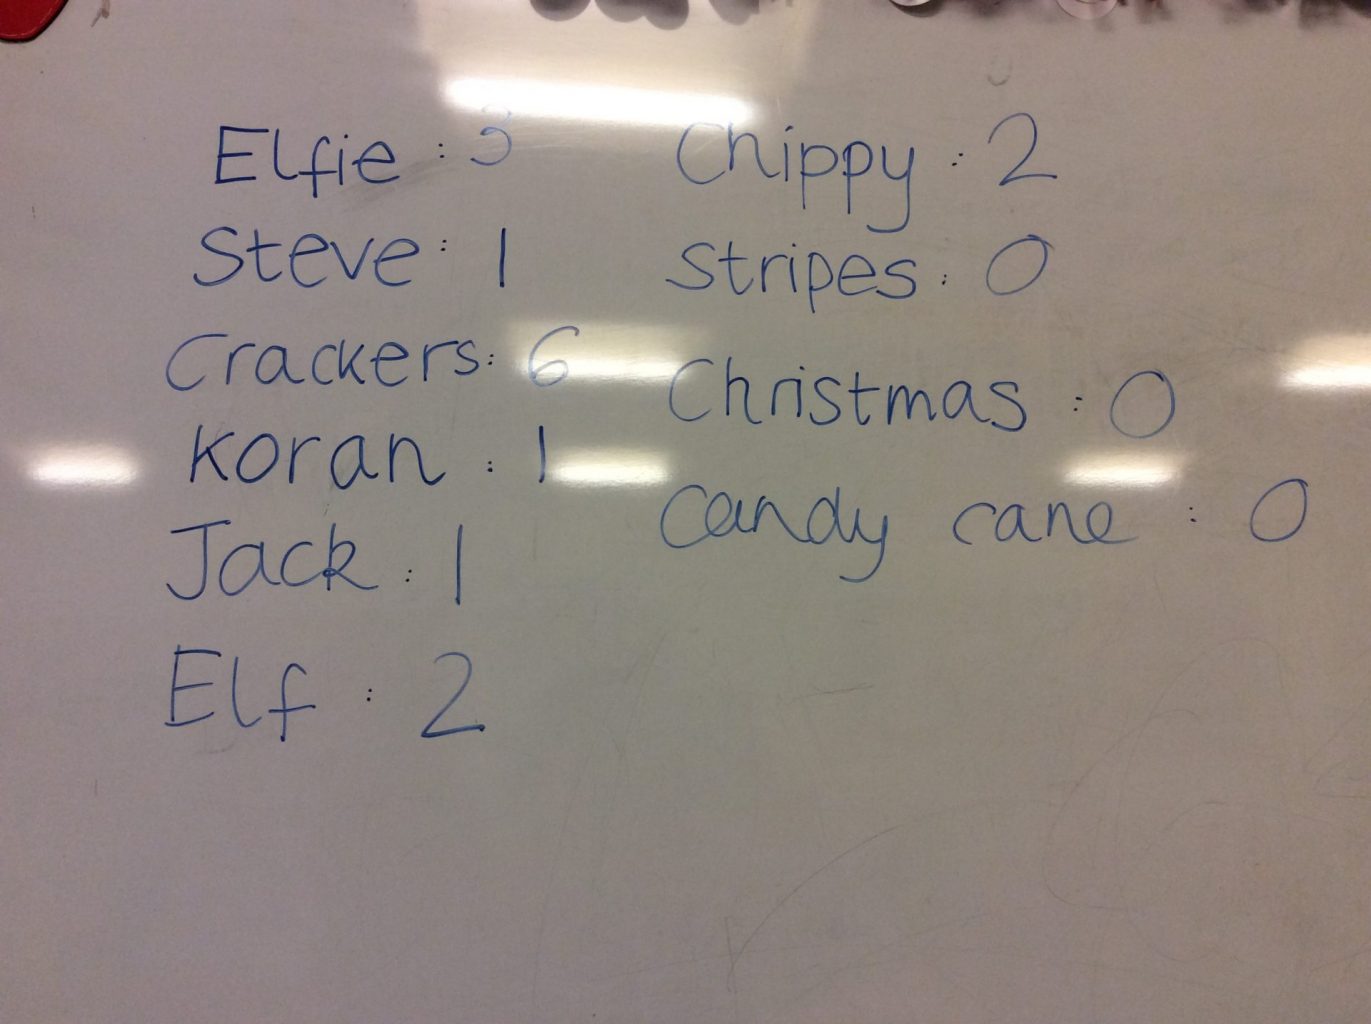 Elfie : 3
Steve : 1
Crackers : 6
Koran : 1
Jack : 1
Elf : 2
Chippy : 2
Stripes : 0
Christmas : 0
Candy cane : 0